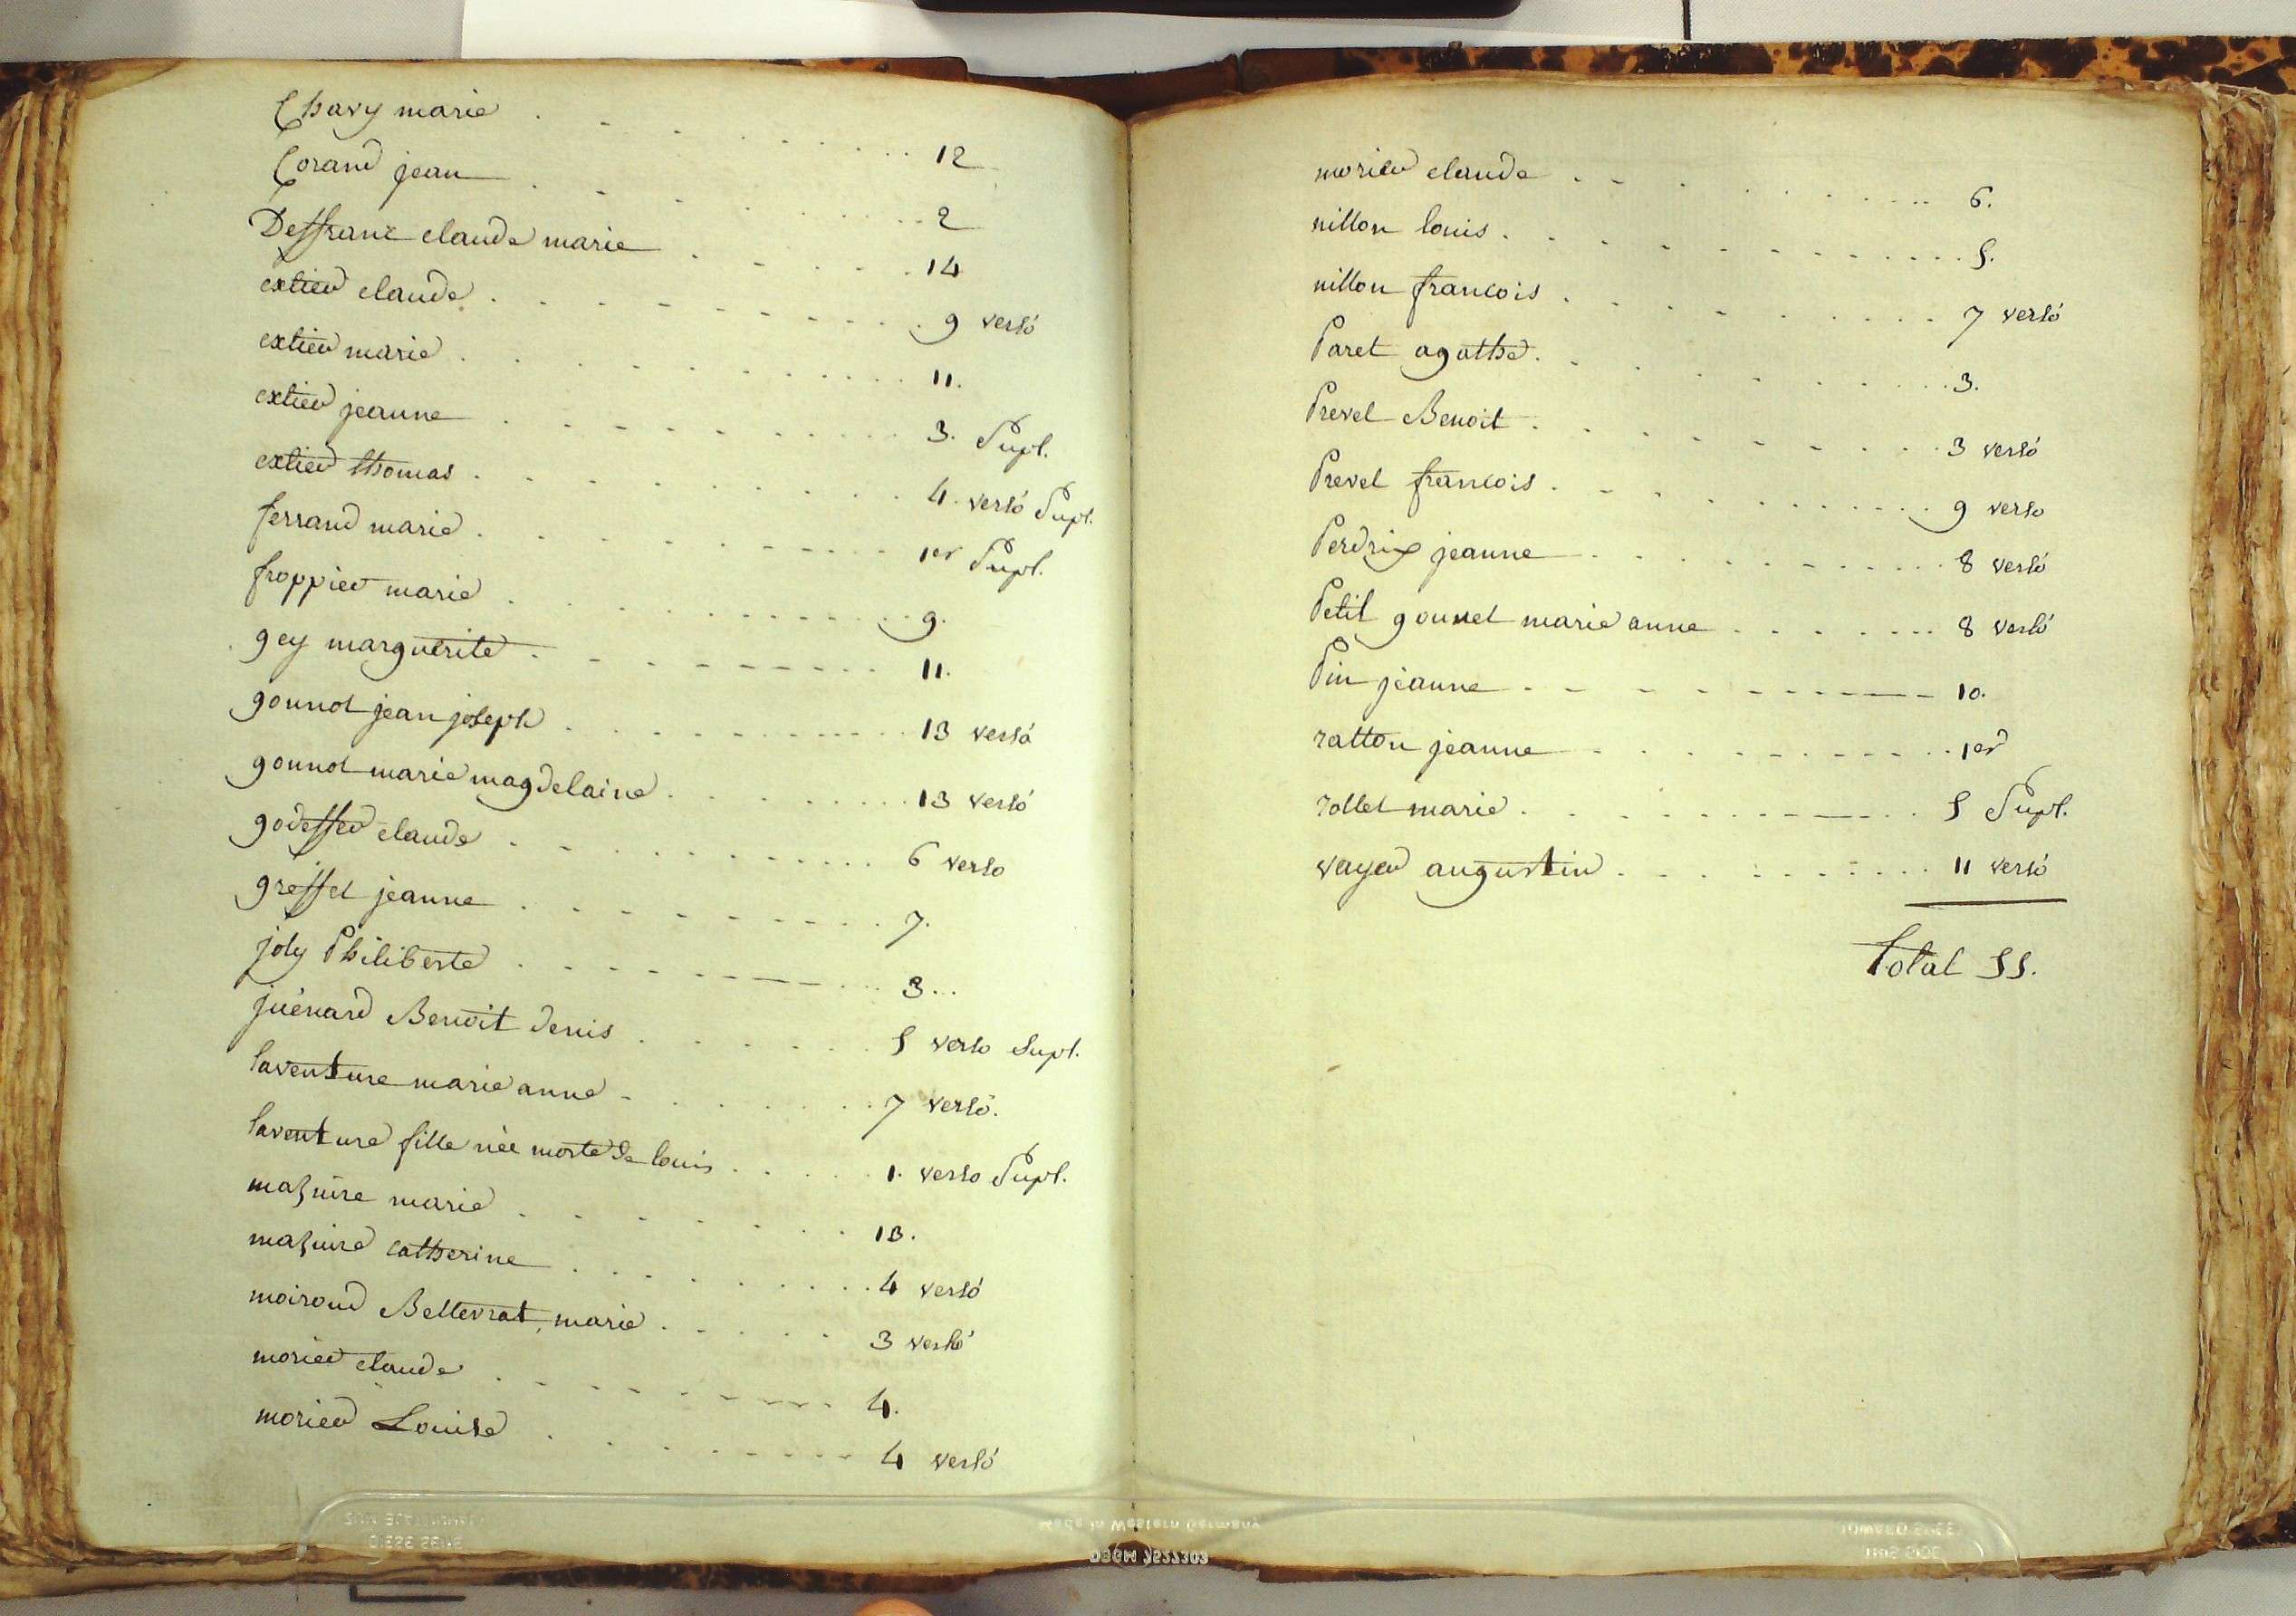 Chavy marie . . . . . . . . 12
Corand jean . . . . . . . . 2
Deffranc claude marie . . . . . 14
extier claude . . . . . . . . 9 verso
extier marie . . . . . . . . 11.
extier jeanne . . . . . . . . 3. Supl.
extier thomas . . . . . . . . 4. verso Supl.
ferrand marie . . . . . . . . 1er Supl.
froppier marie . . . . . . . . 9.
gey marguerite . . . . . . . . 11.
gonnot jean joseph . . . . . . . . 13 verso
gonnot marie magdelaine . . . . . . . . 13 verso
godeffer claude . . . . . . . . 6 verso
greffet jeanne . . . . . . . . 7.
joly Philiberte . . . . . . . . 3...
juénard Benoit denis . . . . . . 5 verso Supl.
laventure marie anne . . . . . . 7 verso.
laventure fille née morte de louis . . . . 1. verso Supl.
mazuire marie . . . . . . . . 13.
mazuire catherine . . . . . . . . 4 verso
moiroud Bellevrat, marie . . . . 3 verso
morier claude . . . . . . . . 4.
morier Louise . . . . . . . . 4 verso
morier claude . . . . . . . . 6.
nillon louis . . . . . . . . 5.
nillon francois . . . . . . . . 7 verso
Paret agathe . . . . . . . . 3.
Prevel Benoit . . . . . . . . 3 verso
Prevel francois . . . . . . . . 9 verso
Perdrix jeanne . . . . . . . . 8 verso
Petit gonnet marie anne . . . . . . 8 verso
Pin jeanne . . . . . . . . 10.
ratton jeanne . . . . . . . . 1er
rollet marie . . . . . . . . 5 Supl.
vayer augustin . . . . . . . . 11 verso
Total 55.
Made in Western Germany
DBGM 7527303